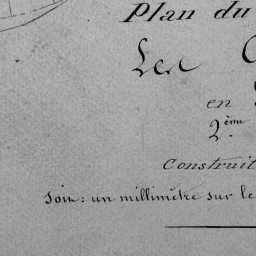 Plan du
Les
en
2ème
Construit
Soit: un millimètre sur le